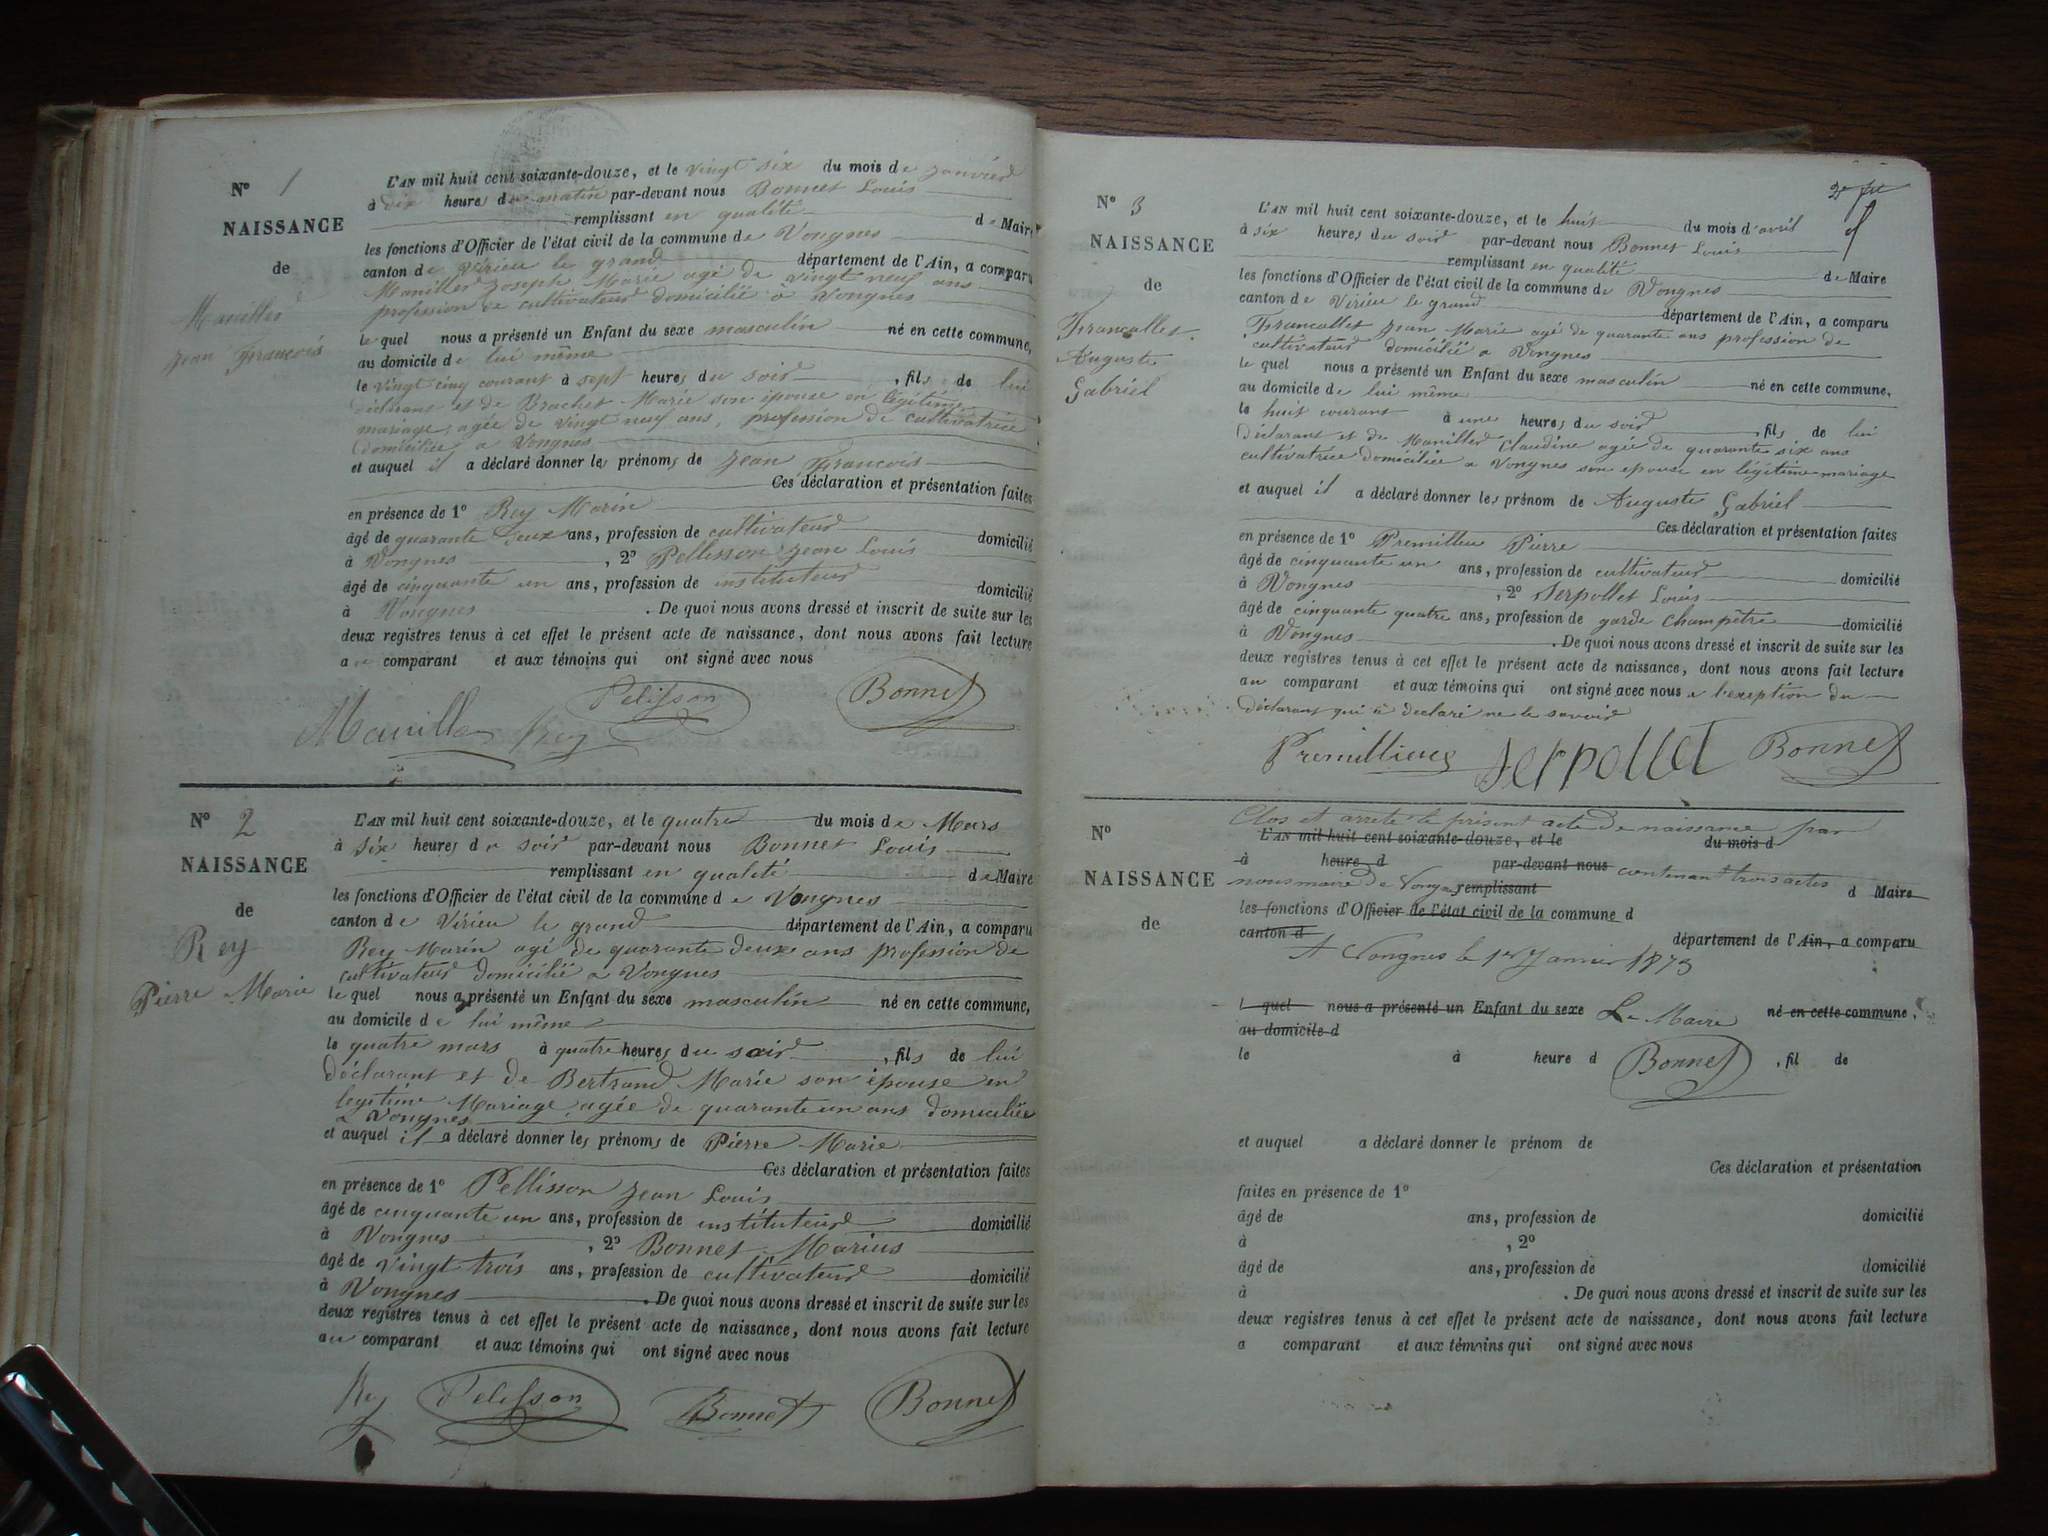 N° 1
NAISSANCE
de
Maniller
Jean François
L'AN mil huit cent soixante-douze, et le vingt six du mois de Janvier
à dix heures du matin par-devant nous Bonnet Louis
remplissant en qualité de Maire
les fonctions d'Officier de l'état civil de la commune de Vongnes
canton de Virieu le grand département de l'Ain, a comparu
Maniller Joseph Marie agé de vingt neuf ans
profession de cultivateur domicilié à Vongnes
le quel nous a présenté un Enfant du sexe masculin né en cette commune,
au domicile de lui même
le vingt cinq courant à sept heures du soir, fils de lui
déclarant et de Brachet Marie son épouse en légitime
mariage, agée de vingt neuf ans, profession de cultivatrice
domiciliée a Vongnes
et auquel il a déclaré donner les prénoms de Jean François
Ces déclaration et présentation faites
en présence de 1° Rey Marin
âgé de quarante deux ans, profession de cultivateur domicilié
à Vongnes, 2° Pellisson Jean Louis
âgé de cinquante un ans, profession de instituteur domicilié
à Vongnes. De quoi nous avons dressé et inscrit de suite sur les
deux registres tenus à cet effet le présent acte de naissance, dont nous avons fait lecture
au comparant et aux témoins qui ont signé avec nous
Maniller Rey Pelisson Bonnet
N° 2
NAISSANCE
de
Rey
Pierre Marie
L'AN mil huit cent soixante-douze, et le quatre du mois de Mars
à six heures du soir par-devant nous Bonnet Louis
remplissant en qualité de Maire
les fonctions d'Officier de l'état civil de la commune de Vongnes
canton de Virieu le grand département de l'Ain, a comparu
Rey Marin agé de quarante deux ans profession de
cultivateur domicilié a Vongnes
le quel nous a présenté un Enfant du sexe masculin né en cette commune,
au domicile de lui même
le quatre mars à quatre heures du soir, fils de lui
déclarant et de Bertrand Marie son épouse en
legitime Mariage, agée de quarante un ans domiciliée
a Vongnes
et auquel il a déclaré donner les prénoms de Pierre Marie
Ces déclaration et présentation faites
en présence de 1° Pellisson Jean Louis
âgé de cinquante un ans, profession de instituteur domicilié
à Vongnes, 2° Bonnet Marius
âgé de vingt trois ans, profession de cultivateur domicilié
à Vongnes. De quoi nous avons dressé et inscrit de suite sur les
deux registres tenus à cet effet le présent acte de naissance, dont nous avons fait lecture
au comparant et aux témoins qui ont signé avec nous
Rey Pelisson Bonnet Bonnet
N° 3
NAISSANCE
de
Francallet
Auguste
Gabriel
L'AN mil huit cent soixante-douze, et le huit du mois d'avril
à six heures du soir par-devant nous Bonnet Louis
remplissant en qualité de Maire
les fonctions d'Officier de l'état civil de la commune de Vongnes
canton de Virieu le grand département de l'Ain, a comparu
Francallet Jean Marie agé de quarante ans profession de
cultivateur domicilié a Vongnes
le quel nous a présenté un Enfant du sexe masculin né en cette commune,
au domicile de lui même
le huit courant à une heures du soir, fils de lui
déclarant et de Maniller Claudine agée de quarante six ans
cultivatrice domiciliée a Vongnes son epouse en légitime mariage
et auquel il a déclaré donner les prénom de Auguste Gabriel
Ces déclaration et présentation faites
en présence de 1° Premillieu Pierre
âgé de cinquante un ans, profession de cultivateur domicilié
à Vongnes, 2° Serpollet Louis
âgé de cinquante quatre ans, profession de garde champêtre domicilié
à Vongnes. De quoi nous avons dressé et inscrit de suite sur les
deux registres tenus à cet effet le présent acte de naissance, dont nous avons fait lecture
au comparant et aux témoins qui ont signé avec nous a l'exeption du
déclarant qui a declaré ne le savoir
Premillieux Serpollet Bonnet
N°
NAISSANCE
de
Clos et arrete le présent acte de naissance par
L'AN mil huit cent soixante-douze, et le du mois d
à heure d par-devant nous contenant trois actes
nous maire de Vongnes remplissant d Maire
les fonctions d'Officier de l'état civil de la commune d
canton d département de l'Ain, a comparu
A Vongnes le 1er Janvier 1873
l quel nous a présenté un Enfant du sexe Le Maire né en cette commune,
au domicile d
le à heure d Bonnet, fil de
et auquel a déclaré donner le prénom de
Ces déclaration et présentation
faites en présence de 1°
âgé de ans, profession de domicilié
à , 2°
âgé de ans, profession de domicilié
à . De quoi nous avons dressé et inscrit de suite sur les
deux registres tenus à cet effet le présent acte de naissance, dont nous avons fait lecture
a comparant et aux témoins qui ont signé avec nous